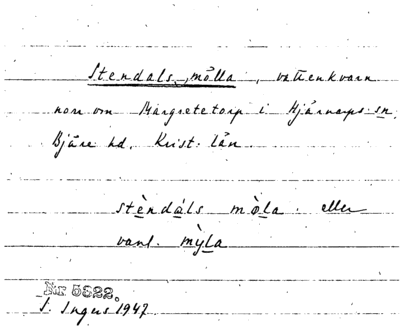 Stendals mölla, vattenkvarn
norr om Margretetorp i Hjärnarps sn,
Bjäre hd, Krist. län
stèndáls mö̀la eller
vanl. mỳla
Nr 5322.
S. Ingers 1947